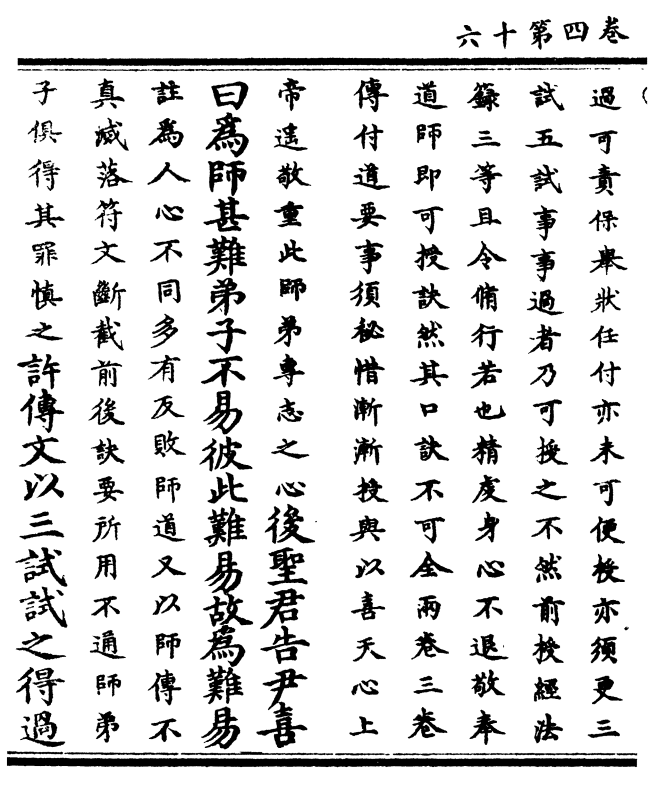 卷四第十六
過可責保舉狀任付亦未可便授亦須更三
試五試事事過者乃可授之不然前授經法
籙三等且令脩行若也精虔身心不退敬奉
道師即可授訣然其口訣不可全兩卷三卷
傳付道要事須秘惜漸漸授與以喜天心上
帝遥敬重此師弟專志之心後聖君告尹喜
曰為師甚難弟子不易彼此難易故為難易
註為人心不同多有反敗師道又以師傳不
真滅落符文斷截前後訣要所用不通師弟
子俱得其罪慎之許傳文以三試試之得過